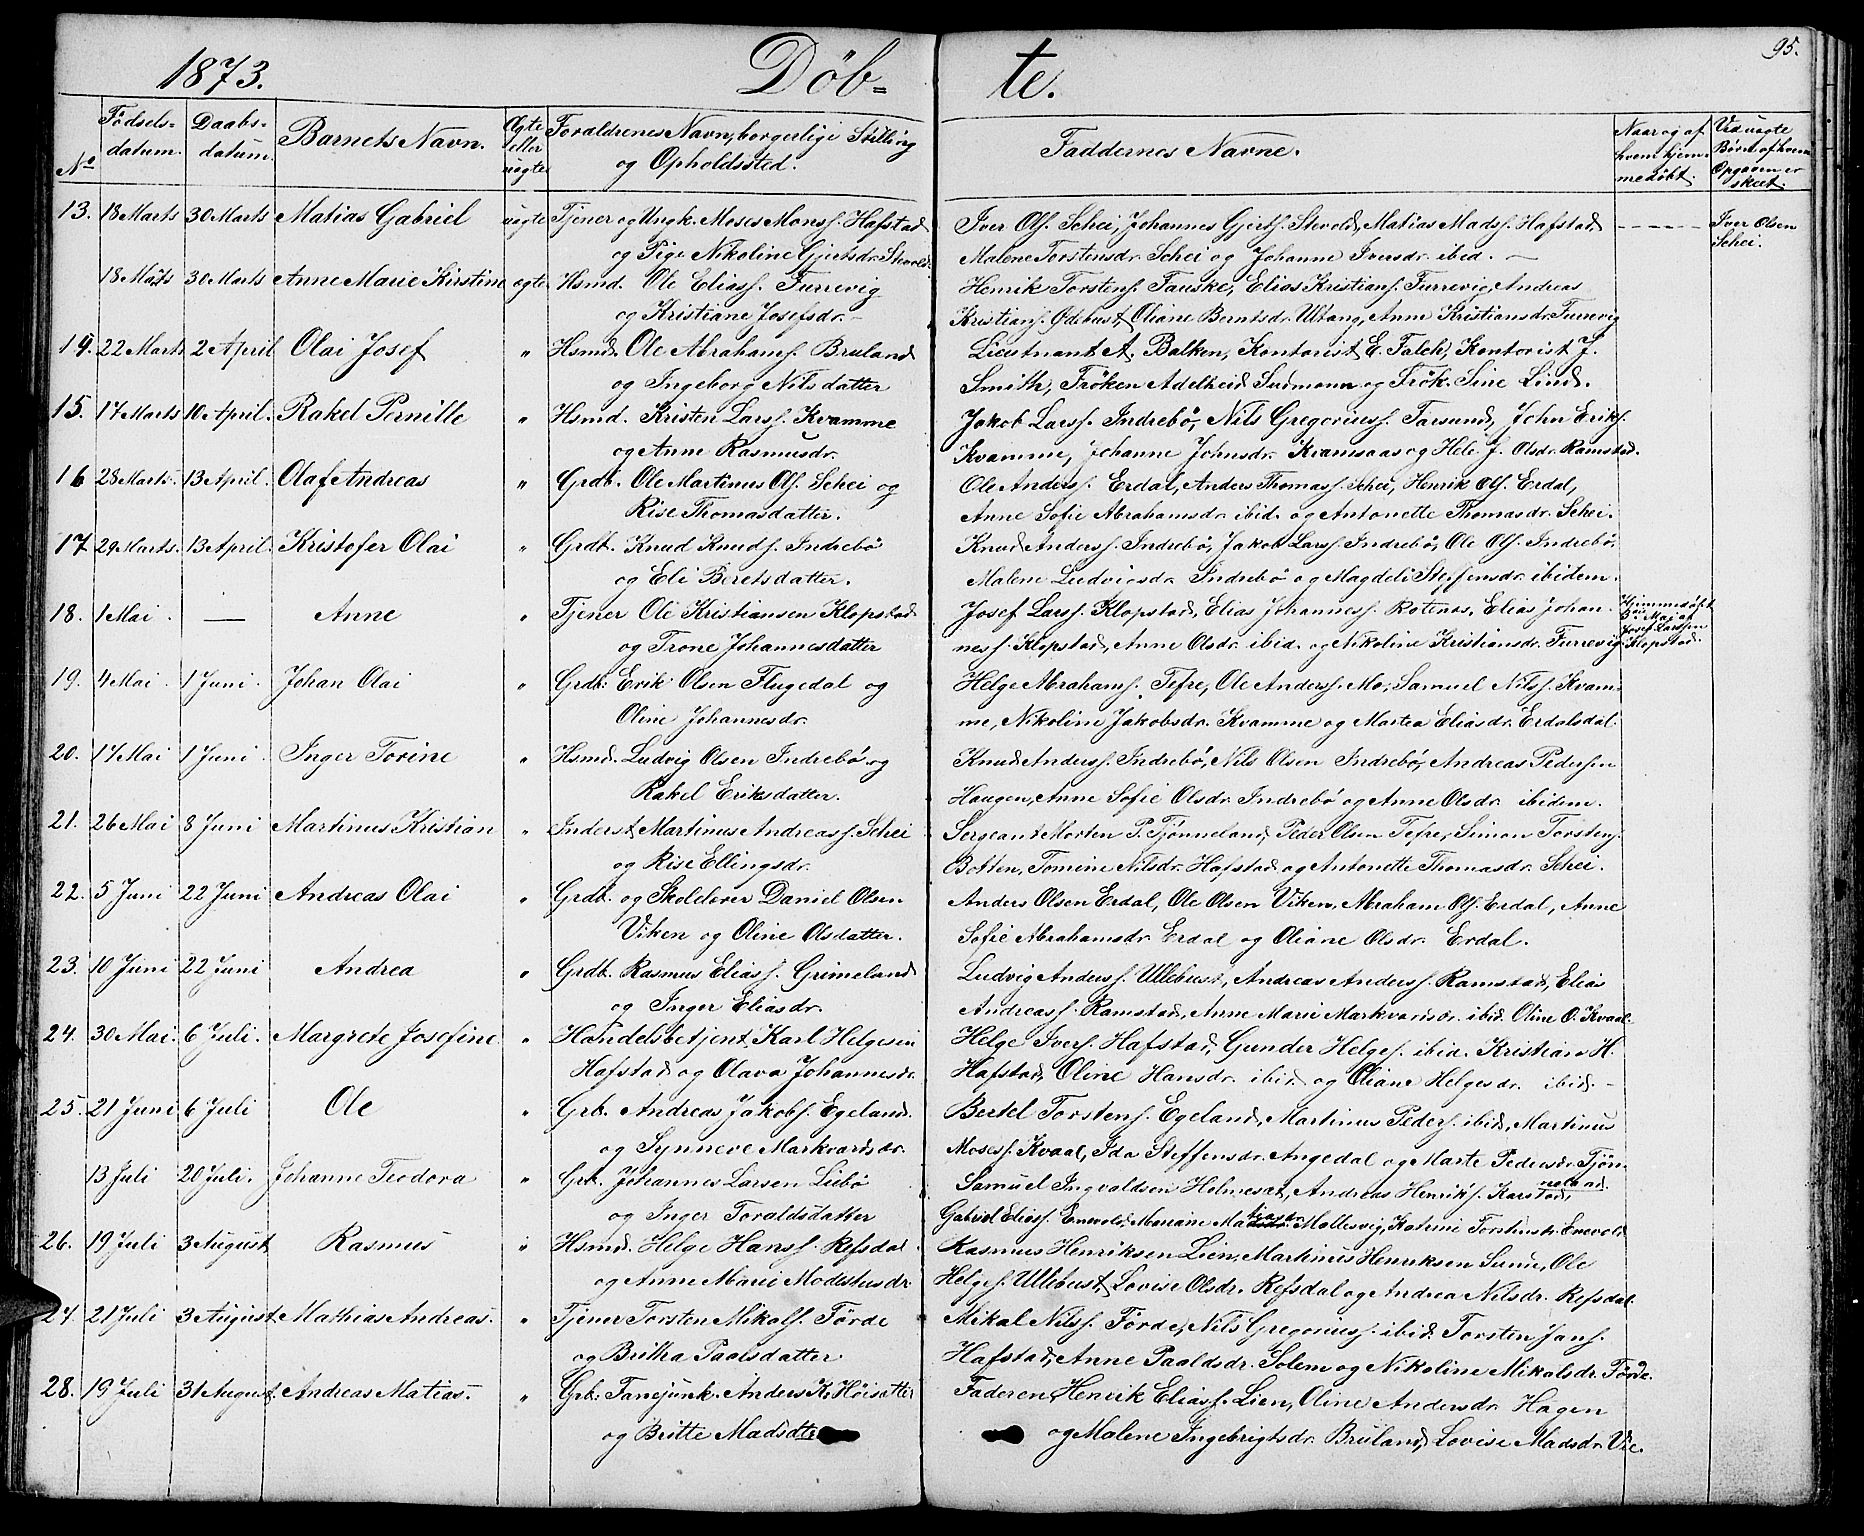 95.
1873. Døb- te.
No Fødsels-datum. Daabs-datum. Barnets Navn. Ægte eller uægte Foraldrenes Navn, borgerlige Stilling og Opholdssted. Faddernes Navne. Naar og af hvem hjemmedøbt. Ved uægte Børn af hvem Opgaven er skeet.
13. 18 Marts 30 Marts Matias Gabriel uægte Tjener og Ungk. Moses Monss. Hafstad Iver Ols. Schei, Johannes Gjerts. Stevold, Matias Madss. Hafstad, Iver Olsen
og Pige Nikoline Gjertsdr. Malene Torstensdr. Schei og Johanne Iversdr. ibid. Schei.
18 Marts 30 Marts Anne Marie Kirstine ægte Hsmd. Ole Eliass. Furrevig Henrik Torstens. Fauske, Elias Kristians. Furrevig, Andreas
og Kristiane Josefsdr. Kristians. Ødebust, Oliane Berntsdr. Utvang, Anne Kristiansdr. Furrevig
14. 22 Marts 2 April Olai Josef " Hsmd. Ole Abrahams. Bruland Lieutnant A. Balken, Kontorist E. Falch, Kontorist J.
og Ingeborg Nilsdatter Smith, Frøken Adelheid Sudmann og Frøk. Sine Lind.
15. 17 Marts 10 April. Rakel Pernille " Hsmd. Kristen Larss. Kvamme Jakob Larss. Indrebø, Nils Gregoriuss. Farsund, John Eriks.
og Anne Rasmusdr. Kvamme, Johanne Johnsdr. Kvamsaas og Hele J. Olsdr. Ramstad.
16 28 Marts. 13 April. Olaf Andreas " Grdb. Ole Martinus Ols. Schei og Ole Anderss. Erdal, Anders Thomass. Schei, Henrik Ols. Erdal,
Rise Thomasdatter. Anne Sofie Abrahamsdr. ibid. og Antonette Thomasdr. Schei.
17 29 Marts. 13 April. Kristofer Olai " Grdb. Knud Knuds. Indrebø Knud Anderss. Indrebø, Jakob Larss. Indrebø, Ole Ols. Indrebø,
og Eli Beretsdatter. Malene Ludvigsdr. Indrebø og Magdeli Steffensdr. ibidem.
18. 1 Mai. — Anne " Tjener Ole Kristiansen Klopstad Josef Larss. Klopstad, Elias Johanness. Rotenæs, Elias Johan- Hjemmedøbt
og Trone Johannesdatter ness. Klopstad, Anne Olsdr. ibid. og Nikoline Kristiansdr. Furrevig. Josef Larssen Klopstad.
19. 4 Mai. 1 Juni. Johan Olai " Grdb. Erik Olsen Flugedal og Helge Abrahams. Tefre, Ole Anderss. Mo, Samuel Nilss. Kvam-
Oline Johannesdr. me, Nikoline Jakobsdr. Kvamme og Martea Eliasdr. Erdalsdal.
20. 17 Mai 1 Juni. Inger Torine " Hsmd. Ludvig Olsen Indrebø og Knud Anderss. Indrebø, Nils Olsen Indrebø, Andreas Pedersen
Rakel Eriksdatter. Haugen, Anne Sofie Olsdr. Indrebø og Anne Olsdr. ibidem.
21. 26 Mai 8 Juni Martinus Kristian " Inderst Martinus Andreass. Schei Sergeant Morten P. Tjønneland, Peder Olsen Tefre, Simon Torstens.
og Rise Ellingsdr. Botten, Tomine Nilsdr. Hafstad og Antonette Thomasdr. Schei.
22. 5 Juni 22 Juni Andreas Olai " Grdb. og Skolelærer Daniel Olsen Anders Olsen Erdal, Ole Olsen Viken, Abraham Ols. Erdal, Anne
Viken og Oline Olsdatter. Sofie Abrahamsdr. Erdal og Oliane Olsdr. Erdal.
23. 10 Juni 22 Juni Andrea " Grdb. Rasmus Eliass. Grimeland Ludvig Anderss. Ullebust, Andreas Anderss. Ramstad, Elias
og Inger Eliasdr. Andreass. Ramstad, Anne Marie Markvardsdr. ibid. Oline O. Kvaal.
24. 30 Mai. 6 Juli. Margrete Josefine " Handelsbetjent Karl Helgesen Helge Ivers. Hafstad, Gunder Helges. ibid. Kristian H.
Hafstad og Olava Johannesdr. Hafstad, Oline Hansdr. ibid. og Oliane Helgesdr. ibid.
25. 21 Juni 6 Juli Ole " Grb. Andreas Jakobs. Egeland. Bertel Torstens. Egeland, Martinus Peders. ibid, Martinus
og Synneve Markvardsdr. Mosess. Kvaal, Ida Steffensdr. Angedal og Marte Pedersdr. Tjøn-
13 Juli 20 Juli. Johanne Teodora " Grb. Johannes Larsen Liebø Samuel Ingvaldsen Helmesæt, Andreas Henriks. Karstad,
og Inger Toraldsdatter Gabriel Eliass. Enevold, Mariane Mollesvig, Katrine Torstensdr. Enevold
26. 19 Juli 3 August Rasmus " Hsmd. Helge Hanss. Refsdal. Rasmus Henriksen Lien, Martinus Henriksen Sunn, Ole
og Anne Marie Modestusdr Helges. Ullebust, Lovise Olsdr. Refsdal og Andrea Nilsdr. Refsdal.
27. 21 Juli 3 August Mathias Andreas. " Tjener Torsten Mikals. Førde Mikal Nilss. Førde, Nils Gregoriuss. ibid. Torsten Jans.
og Britha Paalsdatter Hafstad, Anne Paalsdr. Solem og Nikoline Mikalsdr. Førde.
28. 19 Juli 31 August. Andreas Matias. " Grb. Anders K. Høisætter Faderen, Henrik Eliass. Lien, Oline Andersdr. Hagen
og Britte Madsdtr og Malene Ingebrigtsdr. Bruland, Lovise Madsdr. Vie.